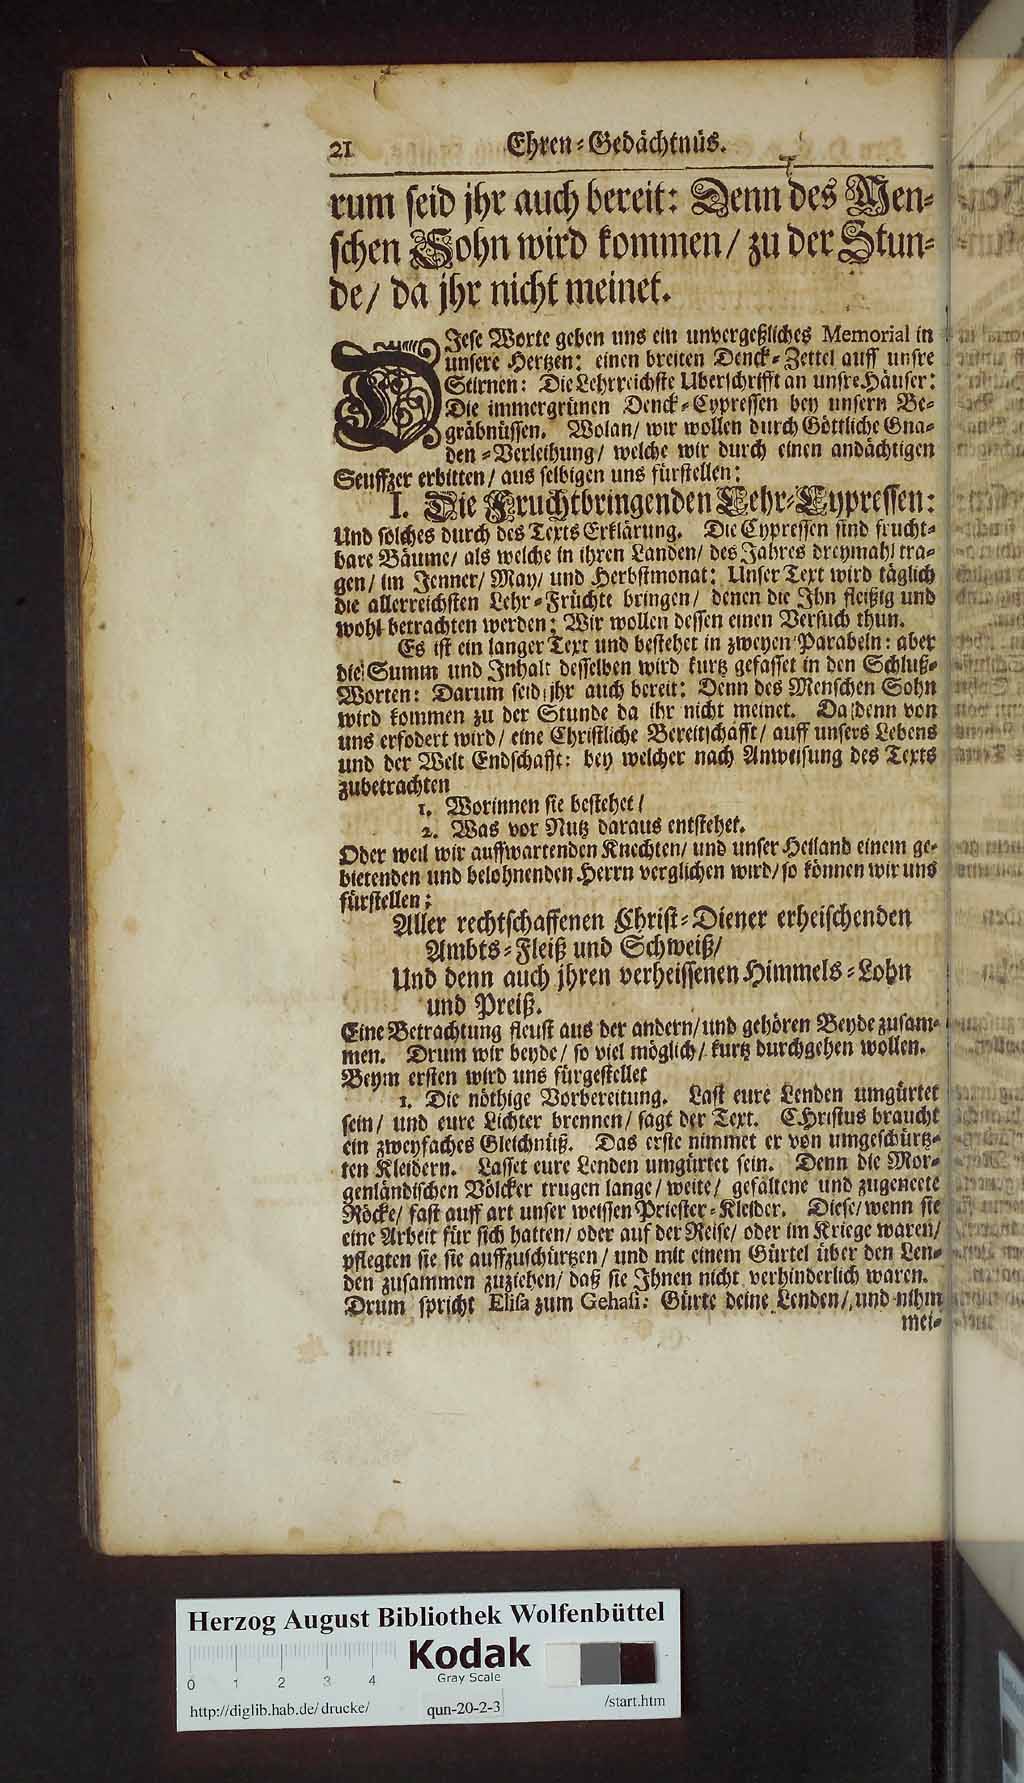 21 Ehren-Gedächtnüs.
rum seid jhr auch bereit: Denn des Men-
schen Sohn wird kommen/ zu der Stun-
de/ da jhr nicht meinet.
DJese Worte geben uns ein unvergeßliches Memorial in
unsere Hertzen: einen breiten Denck-Zettel auff unsre
Stirnen: Die Lehrreichste Uberschrifft an unsre Häuser:
Die immergrünen Denck-Cypressen bey unsern Be-
gräbnüssen. Wolan/ wir wollen durch Göttliche Gna-
den-Verleihung/ welche wir durch einen andächtigen
Seuffzer erbitten/ aus selbigen uns fürstellen:
I. Die Fruchtbringenden Lehr-Cypressen:
Und solches durch des Texts Erklärung. Die Cypressen sind frucht-
bare Bäume/ als welche in ihren Landen/ des Jahres dreymahl tra-
gen/ im Jenner/ May/ und Herbstmonat: Unser Text wird täglich
die allerreichsten Lehr-Früchte bringen/ denen die Ihn fleißig und
wohl betrachten werden: Wir wollen dessen einen Versuch thun.
Es ist ein langer Text und bestehet in zweyen Parabeln: aber
die Summ und Inhalt desselben wird kurtz gefasset in den Schluß-
Worten: Darum seid jhr auch bereit: Denn des Menschen Sohn
wird kommen zu der Stunde da ihr nicht meinet. Da denn von
uns erfodert wird/ eine Christliche Bereitschafft/ auff unsers Lebens
und der Welt Endschafft: bey welcher nach Anweisung des Texts
zubetrachten
1. Worinnen sie bestehet/
2. Was vor Nutz daraus entstehet.
Oder weil wir auffwartenden Knechten/ und unser Heiland einem ge-
bietenden und belohnenden Herrn verglichen wird/ so können wir uns
fürstellen:
Aller rechtschaffenen Christ-Diener erheischenden
Ambts-Fleiß und Schweiß/
Und denn auch jhren verheissenen Himmels-Lohn
und Preiß.
Eine Betrachtung fleust aus der andern/ und gehören Beyde zusam-
men. Drum wir beyde/ so viel möglich/ kurtz durchgehen wollen.
Beym ersten wird uns fürgestellet
1. Die nöthige Vorbereitung. Last eure Lenden umgürtet
sein/ und eure Lichter brennen/ sagt der Text. CHristus braucht
ein zweyfaches Gleichnüß. Das erste nimmet er von umgeschürtz-
ten Kleidern. Lasset eure Lenden umgürtet sein. Denn die Mor-
genländischen Völcker trugen lange/ weite/ gefaltene und zugeneete
Röcke/ fast auff art unser weissen Priester-Kleider. Diese/ wenn sie
eine Arbeit für sich hatten/ oder auf der Reise/ oder im Kriege waren/
pflegten sie sie auffzuschürtzen/ und mit einem Gürtel über den Len-
den zusammen zuziehen/ daß sie Ihnen nicht verhinderlich waren.
Drum spricht Elisa zum Gehasi: Gürte deine Lenden/ und nihm
mei-
Herzog August Bibliothek Wolfenbüttel
Kodak
Gray Scale
0 1 2 3 4
http://diglib.hab.de/drucke/ qun-20-2-3 /start.htm